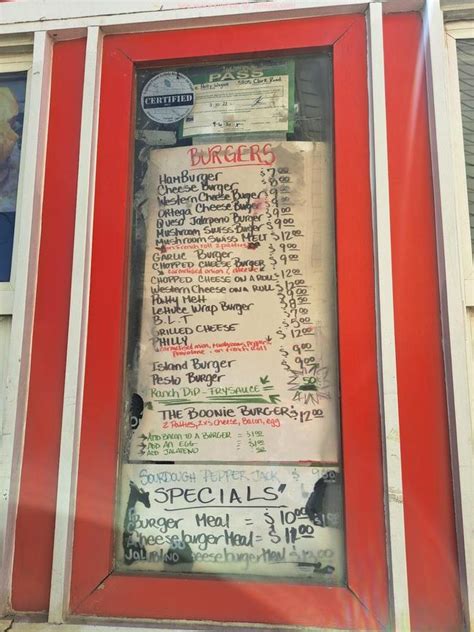 CERTIFIED
PASS
BURGERS
HamBurger $7.00
Cheese Burger $8.00
Western Cheese Burger $9.00
Ortega Cheese Burger
Queso Jalapeno Burger $9.00
Mushroom Swiss Burger $9.00
Mushroom Swiss MELT $12.00
on french roll 2 patties
Garlic Burger $9.00
CHOPPED CHEESE BURGER $9.00
CHOPPED CHEESE ON A ROLL $12.00
Western Cheese ON A ROLL
Patty Melt
Lettuce Wrap Burger
B.L.T
GRILLED CHEESE
PHILLY $12.00
on French Roll
Island Burger $9.00
Pesto Burger $9.00
Ranch Dip - Fry Sauce 50
THE BOONIE BURGER $12.00
2 Patties, 2x's cheese, Bacon, egg
ADD BACON TO A BURGER =
ADD AN EGG =
ADD JALAPENO =
SOURDOUGH PEPPER JACK
"SPECIALS"
Burger Meal = $10.00
Cheeseburger Meal = $11.00
Jalapeno Cheeseburger Meal